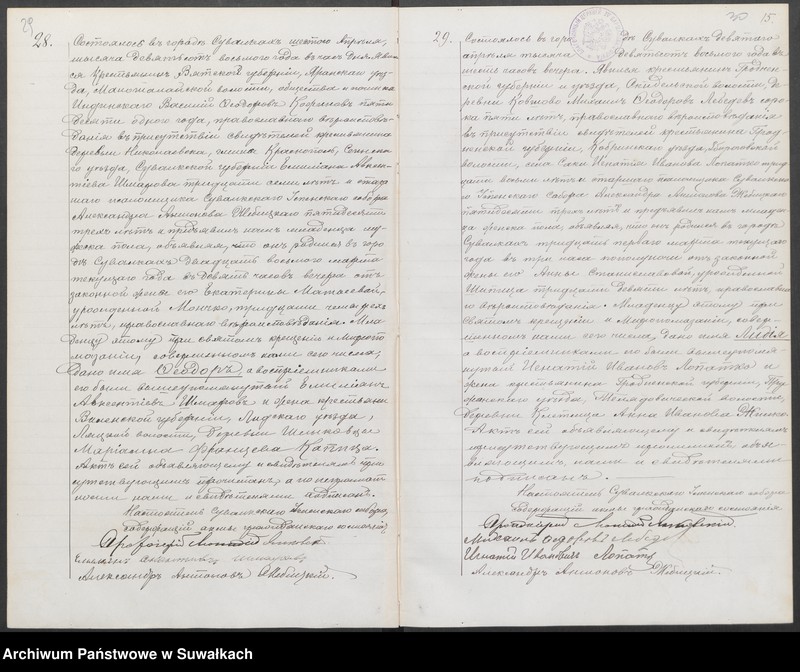 29
28.
Состоялось въ городѣ Сувалкахъ шестого Апрѣля,
тысяча девятьсотъ восьмого года въ часъ дня. Явил-
ся крестьянинъ Вятской губерніи, Яранскаго уѣз-
да, волости, общества и
Василій Ѳеодоровъ пяти-
десяти одного года, православнаго вѣроисповѣ-
данія въ присутствіи свидѣтелей крестьянина
деревни Николаевка, гмины Краснополь, Сейнска-
го уѣзда, Сувалкской губерніи Емиліана Авксен-
тіева Шмарова тридцати семи лѣтъ и стар-
шаго псаломщика Сувалкскаго Успенскаго собора
Александра Антонова пятидесяти
трехъ лѣтъ и предъявилъ намъ младенца му-
жеска пола, объявляя, что онъ родился въ горо-
дѣ Сувалкахъ двадцать восьмого марта
текущаго года въ девять часовъ вечера отъ
законной жены его Екатерины Матвеевой,
урожденной тридцати четырехъ
лѣтъ, православнаго вѣроисповѣданія. Мла-
денцу этому при святомъ крещеніи и Мѵропо-
мазаніи, совершенномъ нами сего числа,
дано имя Ѳеодоръ, а воспріемниками
его были вышеупомянутый Емиліанъ
Авксентіевъ Шмаровъ и жена крестьянина
Виленской губерніи, Лидскаго уѣзда,
волости, деревни
Маріанна Францева Капица.
Актъ сей объявляющему и свидѣтелямъ при-
сутствующимъ прочитанъ, а по неграмотности
нами и свидѣтелями подписанъ.
Настоятель Сувалкскаго Успенскаго собора,
содержащій акты гражданскаго состоянія
Протоіерей
Александръ Антоновъ
30 15.
29.
Состоялось въ городѣ Сувалкахъ девятаго
апрѣля тысяча девятьсотъ восьмого года въ
шесть часовъ вечера. Явился крестьянинъ Гроднен-
ской губерніи и уѣзда, Скидельской волости, де-
ревни Ковшово Михаилъ Ѳеодоровъ Лебедевъ соро-
ка пяти лѣтъ, православнаго вѣроисповѣданія
въ присутствіи свидѣтелей крестьянина Грод-
ненской губерніи, Кобринскаго уѣзда,
волости, села Игнатія Иванова Лопатко трид-
цати восьми лѣтъ и старшаго псаломщика Сувалкска-
го Успенскаго Собора Александра Антонова
пятидесяти трехъ лѣтъ и предъявилъ намъ младен-
ца женска пола, объявляя, что онъ родился въ городѣ
Сувалкахъ тридцать перваго марта текущаго
года въ три часа пополудни отъ законной
жены его Анны Станиславовой, урожденной
тридцати девяти лѣтъ, православна-
го вѣроисповѣданія. Младенцу этому при
святомъ крещеніи и Мѵропомазаніи, совер-
шенномъ нами сего числа, дано имя Лидія,
а воспріемниками его были вышеупомя-
нутый Игнатій Ивановъ Лопатко и
жена крестьянина Гродненской губерніи, Пру-
жанскаго уѣзда, волости,
деревни Анна Иванова
Актъ сей объявляющему и свидѣтелямъ
присутствующимъ прочитанъ, объя-
вляющимъ, нами и свидѣтелями
подписанъ.
Настоятель Сувалкскаго Успенскаго собора
содержащій акты гражданскаго состоянія
Протоіерей
Михаилъ Ѳедоровъ Лебедевъ
Игнатій Ивановъ Лопатко
Александръ Антоновъ
Archiwum Państwowe w Suwałkach